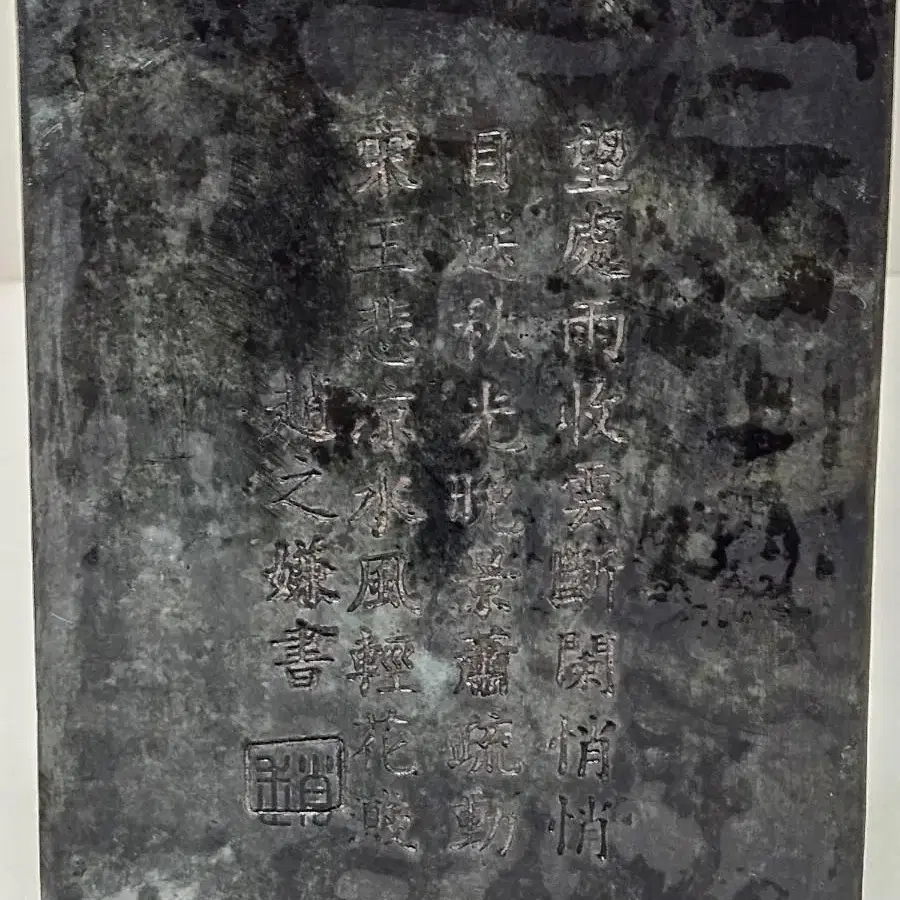 望處雨收雲斷闌悄悄
目送秋光晚景蕭疏動
宋王悲凉水風輕花漸
趙之嫌書